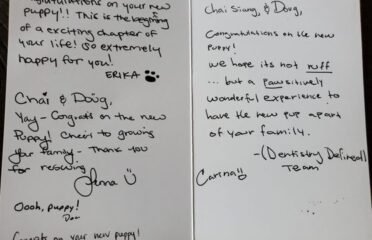 Congratulations on your new
puppy!! This is the beginning
of a exciting chapter of
your life! So extremely
happy for you!
ERIKA
Chai & Doug,
Yay - Congrats on the new
Puppy! Cheers to growing
your family - Thank you
for rescuing
Jenna
Oooh, puppy!
Congrats on your new puppy!
Chai Siang, & Doug,
Congratulations on the new
puppy!
We hope its not ruff
... but a pawsitively
wonderful experience to
have the new pup apart
of your family.
-(Dentistry Defined)
Team
Carina!!